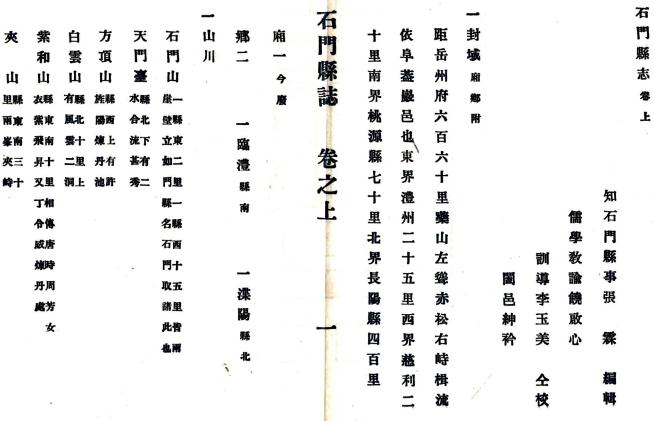 石門縣志 卷上
知石門縣事張霖編輯
儒學敎諭饒啟心
訓導李玉美 仝梭
闔邑紳衿
一封域 廂鄉附
距岳州府六百六十里藥山左聳赤松右峙楫流
依阜叢巖邑也東界澧州二十五里西界慈利二
十里南界桃源縣七十里北界長陽縣四百里
石門縣誌 卷之上 一
廂一 今廢
鄉二 一臨澧 縣南 一渫陽 縣北
一山川
石門山 一縣東二里一縣西十五里皆兩崖壁立如門縣名石門取諸此也
天門臺 縣北下有二水合流甚秀
方頂山 縣西上有許旌陽煉丹池
白雲山 縣北十里上有風雲二洞
紫和山 縣東南十里相傳唐時周芳女衣紫飛昇又丁令威煉丹處
夾山 縣東南三十里兩峯夾峙